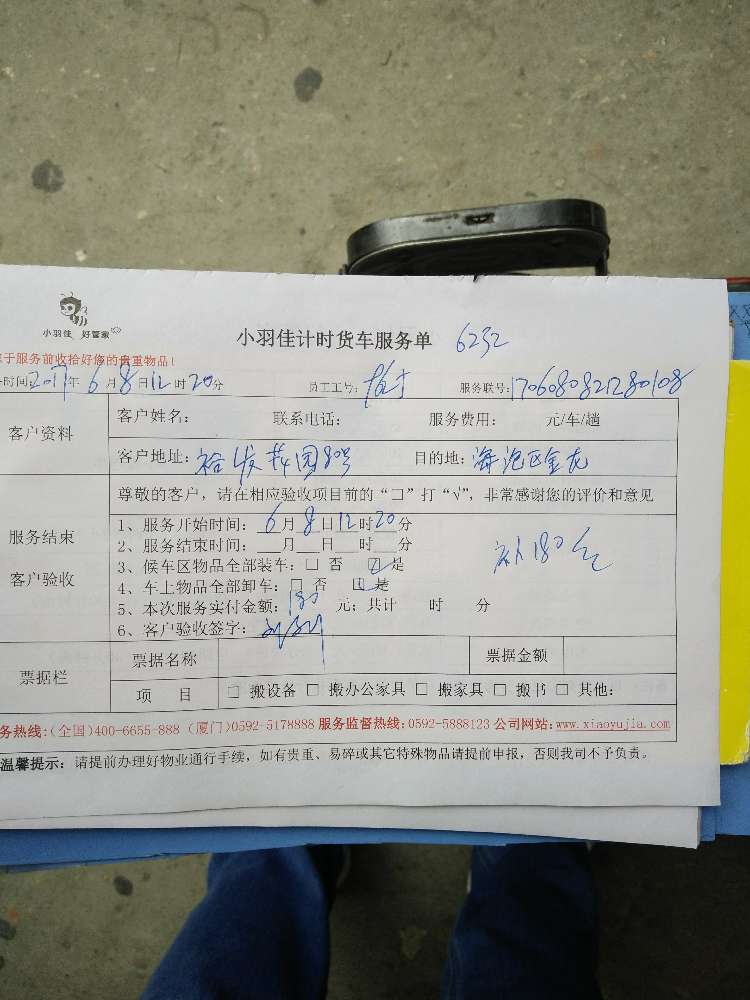 小羽佳 好管家
小羽佳计时货车服务单 6232
于服务前收拾好您的贵重物品!
时间:2017年6月8日12时20分 员工工号: 服务联号:1706080821280108
客户资料
客户姓名: 联系电话: 服务费用: 元/车/趟
客户地址:裕发花园80号 目的地:海沧区金龙
尊敬的客户,请在相应验收项目前的“口”打“√”,非常感谢您的评价和意见
服务结束
客户验收
1、服务开始时间:6月8日12时20分
2、服务结束时间:___月___日___时___分
3、候车区物品全部装车:□ 否 ☑ 是
补180元
4、车上物品全部卸车:□ 否 ☑ 是
5、本次服务实付金额:180元;共计 时 分
6、客户验收签字:
票据栏
票据名称 票据金额
项 目 □ 搬设备 □ 搬办公家具 □ 搬家具 □ 搬书 □ 其他:
务热线:(全国)400-6655-888 (厦门)0592-5178888 服务监督热线:0592-5888123 公司网站:www.xiaoyujia.com
温馨提示:请提前办理好物业通行手续,如有贵重、易碎或其它特殊物品请提前申报,否则我司不予负责。